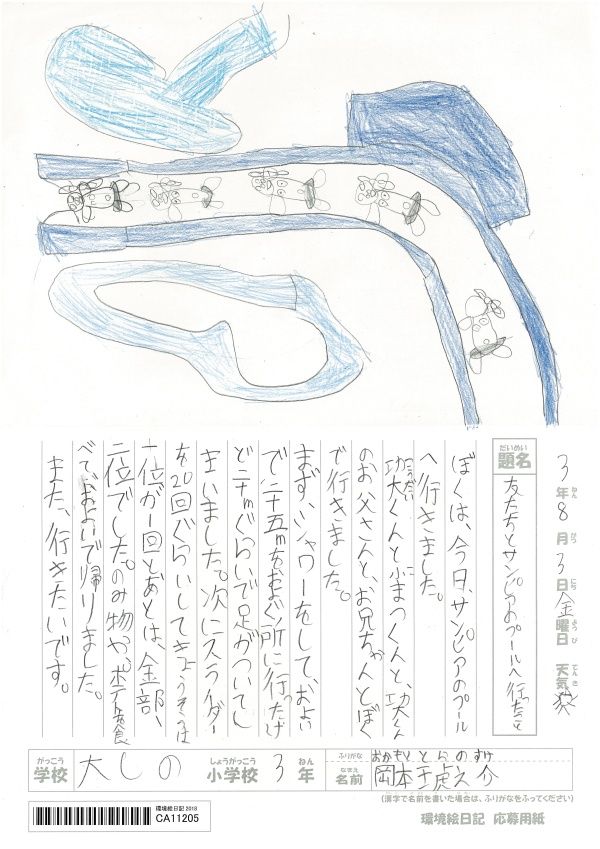 3年8月3日金曜日 天気
ねん がつ にち ようび てんき
だいめい
題名 友だちとサンピアのプールへ行ったこと
ぼくは、今日、サンピアのプール
へ行きました。
功大くんと小まつくんと、功大くん
のお父さんと、お兄ちゃんとぼく
で行きました。
まず、シャワーをして、およい
で二十五mをおよぐ所に行ったけ
ど二十mぐらいで足がついてし
まいました。次にスライダー
を20回ぐらいしてきょうそうは
一位が1回とあとは、全部、
二位でした。のみ物や、ポテトを食
べて、およいで帰りました。
また、行きたいです。
がっこう しょうがっこう ねん
学校 大しの 小学校 3年
ふりがな おかもと とらのすけ
なまえ
名前 岡本 虎之介
(漢字で名前を書いた場合は、ふりがなをふってください)
環境絵日記2018
CA11205
環境絵日記 応募用紙